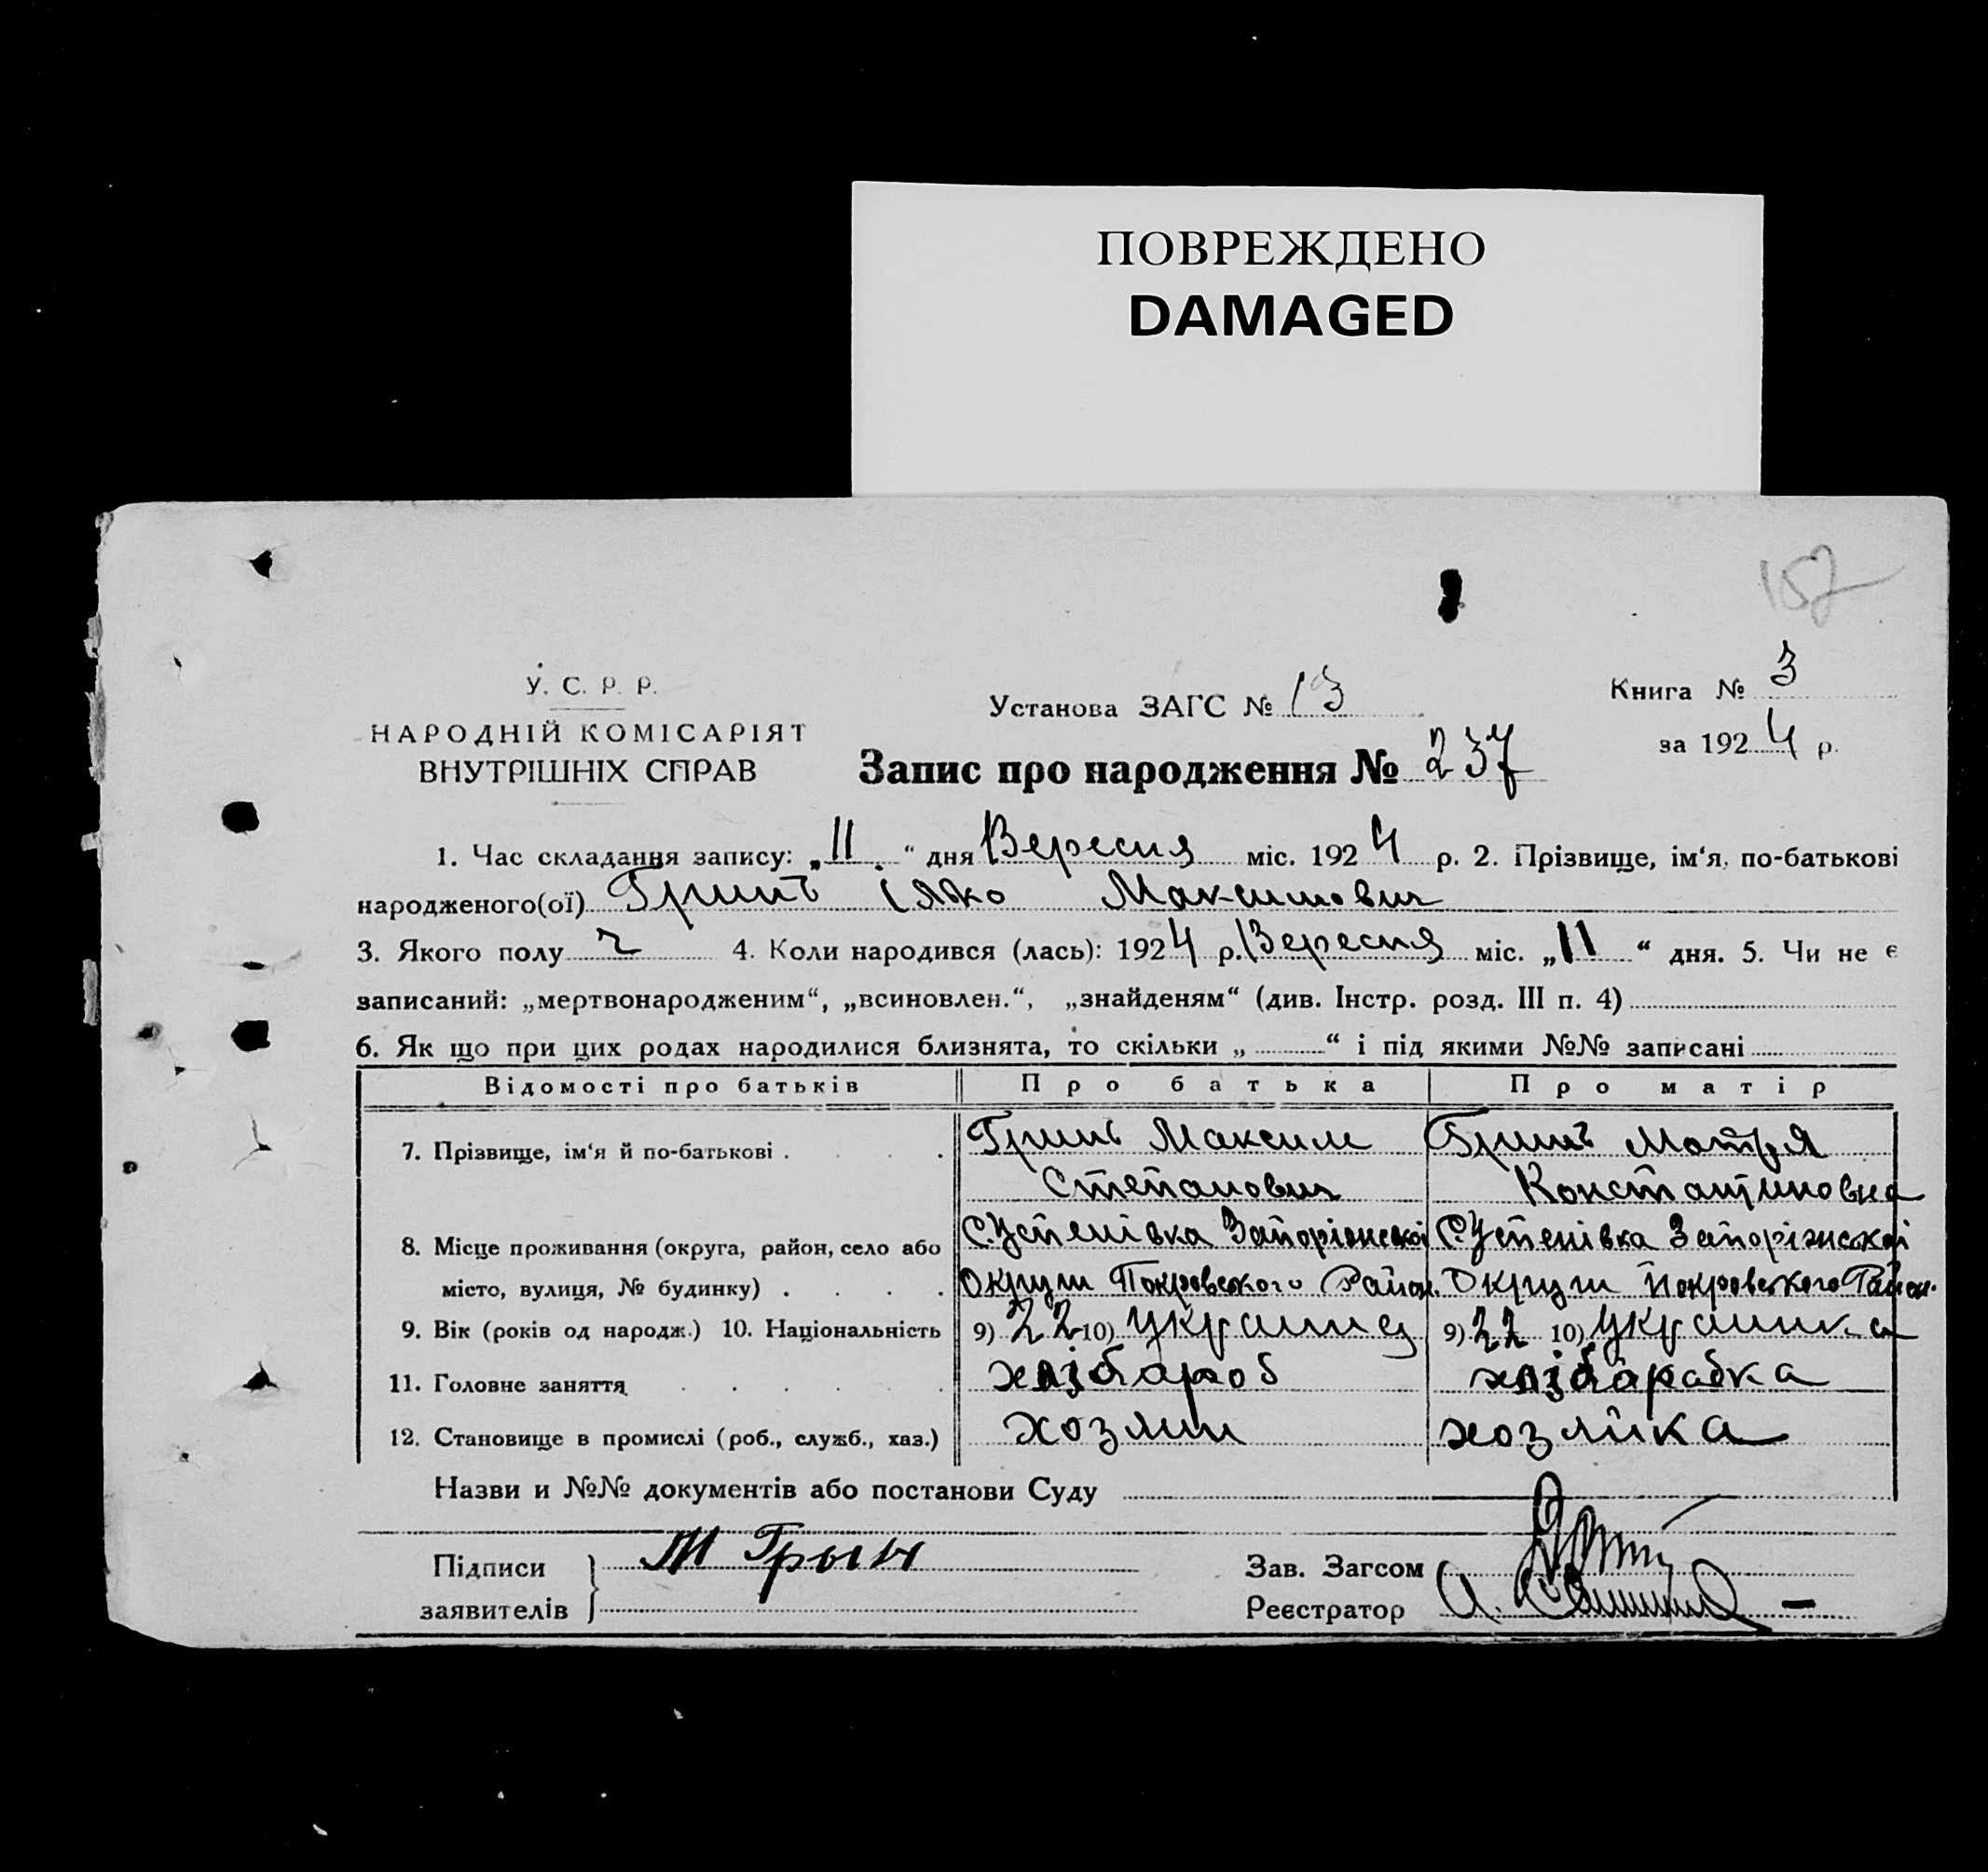 ПОВРЕЖДЕНО
DAMAGED
152
У. С. Р. Р.
НАРОДНІЙ КОМІСАРІЯТ
ВНУТРІШНІХ СПРАВ
Установа ЗАГС № 13
Книга № 3
за 1924 р.
Запис про народження № 237
1. Час складання запису: „11“ дня Вересня міс. 1924 р. 2. Прізвище, ім‘я, по-батькові
народженого(ої) Гринь Максимович
3. Якого полу ч 4. Коли народився (лась): 1924 р. Вересня міс. „11“ дня. 5. Чи не є
записаний: „мертвонародженим“, „всиновлен.“, „знайденям“ (див. Інстр. розд. III п. 4)
6. Як що при цих родах народилися близнята, то скільки „ “ і під якими №№ записані
Відомості про батьків Про батька Про матір
7. Прізвище, ім‘я й по-батькові . . . . Гринь Максим Гринь Мотря
Степанович Константиновна
8. Місце проживання (округа, район, село або С. Успенівка Запоріжської С. Успенівка Запоріжської
місто, вулиця, № будинку) . . . . Округи Покровського Район. Округи Покровського Район.
9. Вік (років од народж.) 10. Національність 9) 22 10) 9) 22 10) українка
11. Головне заняття . . . . . хлібароб хлібарабка
12. Становище в промислі (роб., служб., хаз.) хозяин хозяйка
Назви и №№ документів або постанови Суду
Підписи
заявителів } М Грынь
Зав. Загсом
Реєстратор